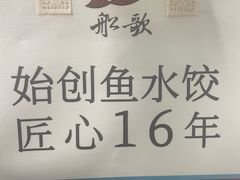 船歌
始创鱼水饺
匠心16年